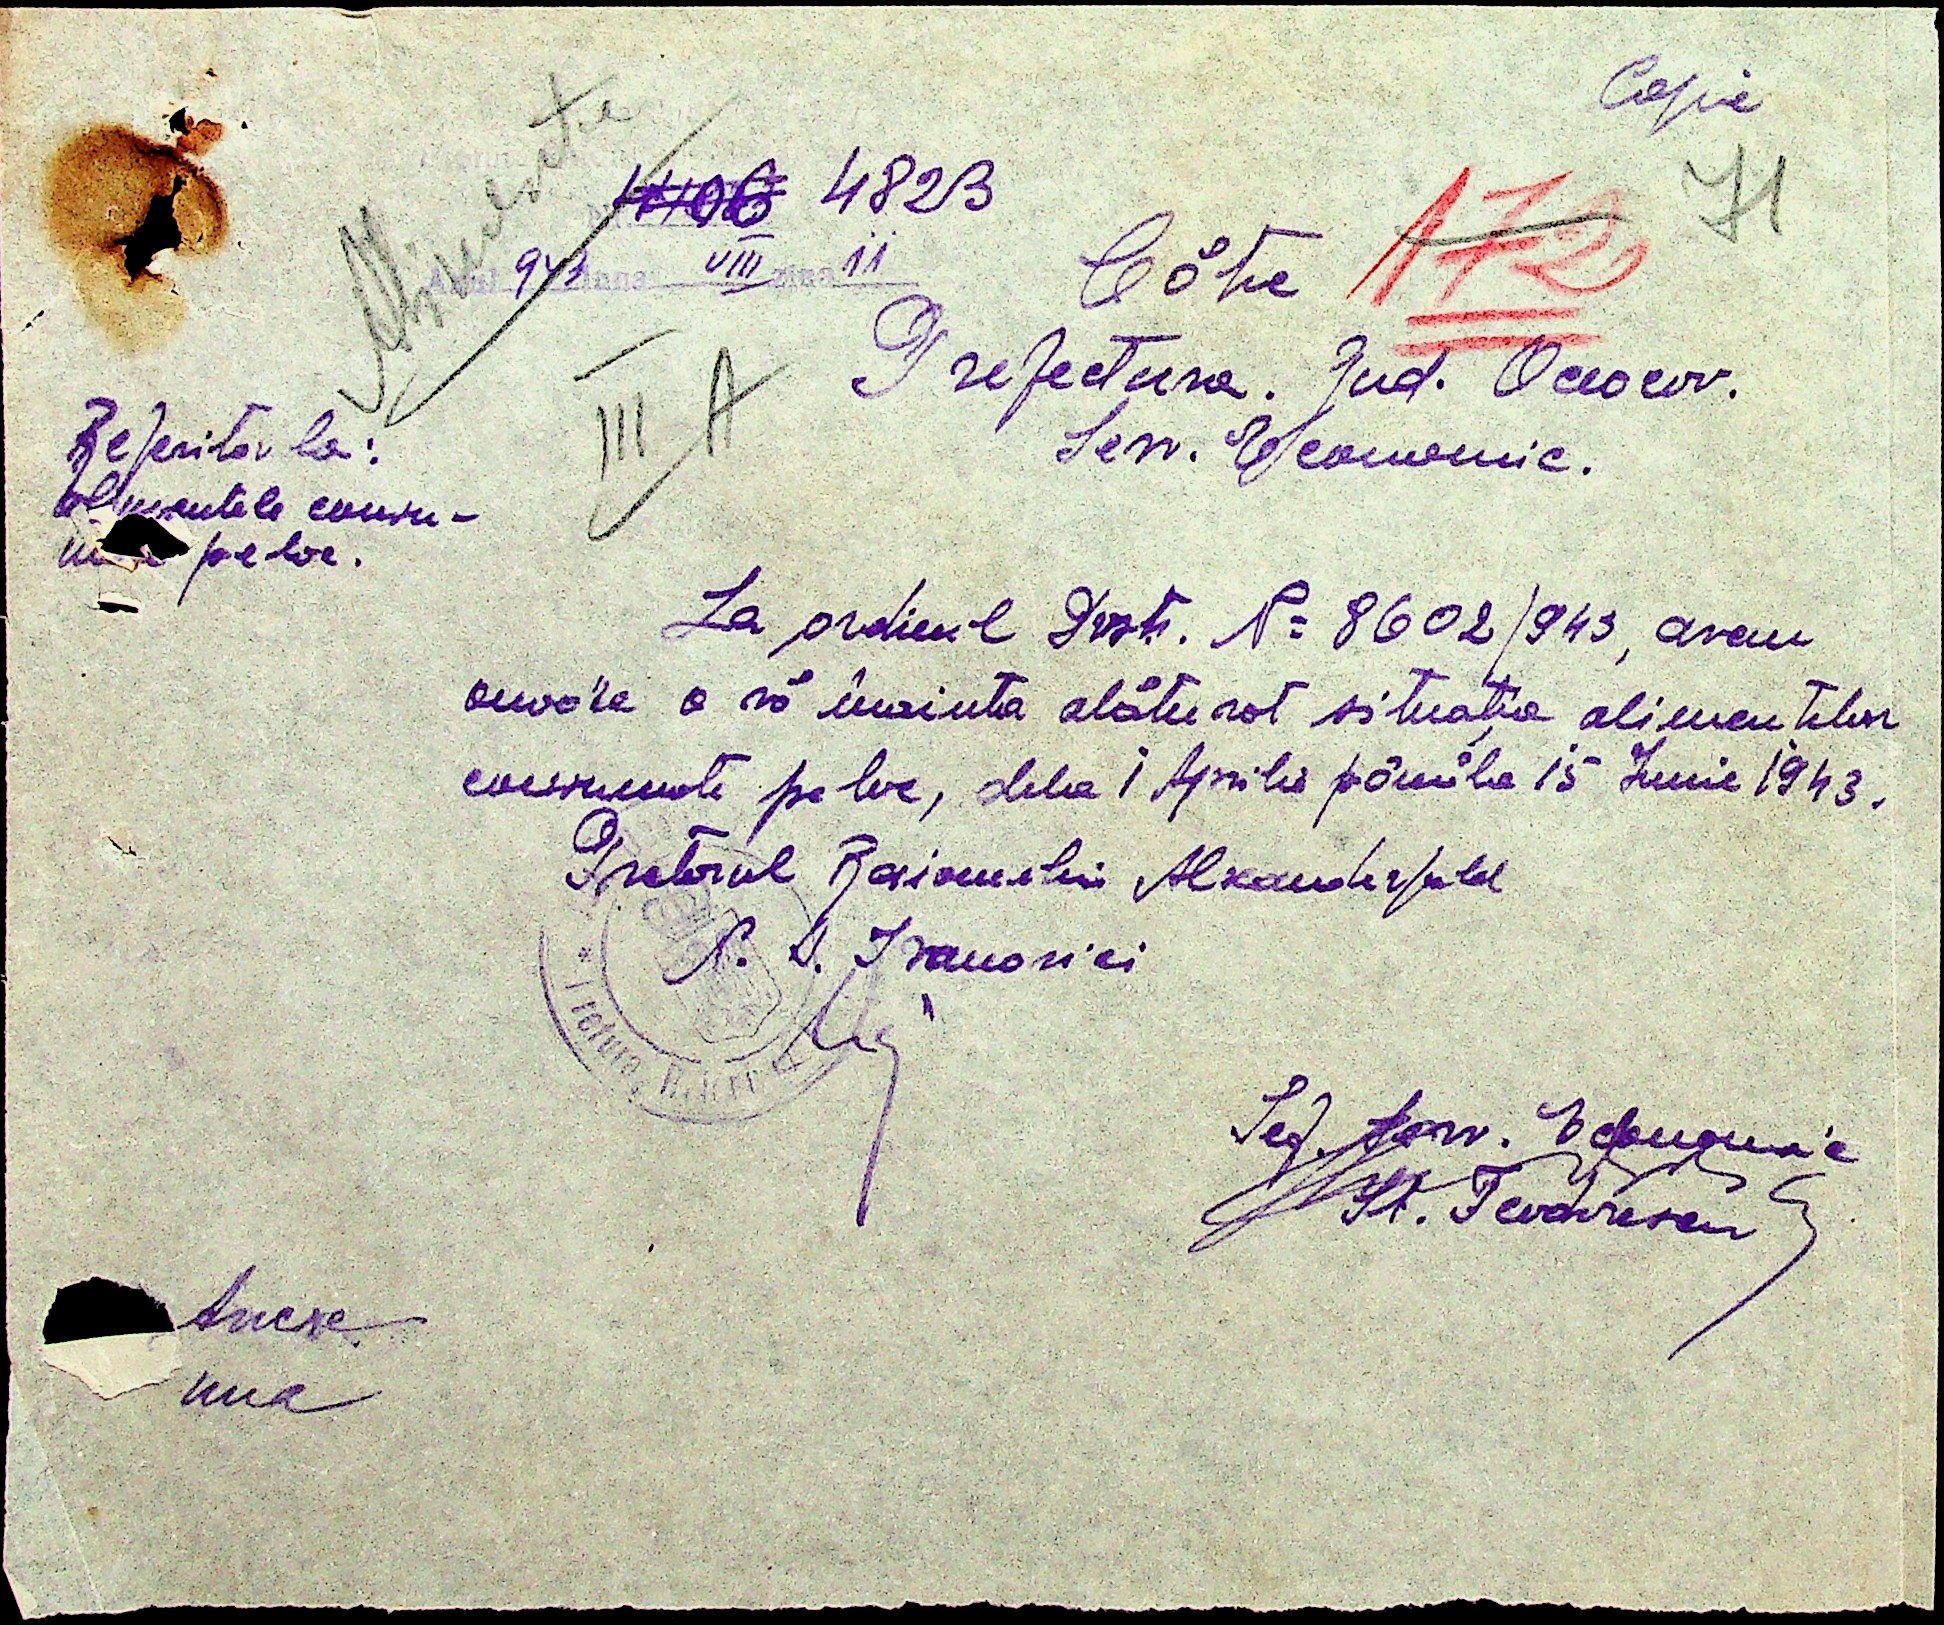 Copie
Alimente
4823
172
71
Anul 943 Luna VIII ziua 11
Către
Prefectura. Jud. Oceacov.
Serv. Economic.
III A
Referitor la:
alimentele consu-
pe loc.
La ordinul Dvstr. No 8602/943, avem
onoare a vă înainta alăturat situația alimentelor
consumate pe loc, dela 1 Aprilie până la 15 Iunie 1943.
Pretorul Raionului Alexanderfeld
N. D. Ivanovici
Șef. Serv. Economic
St. Teodorescu
Anexe
una